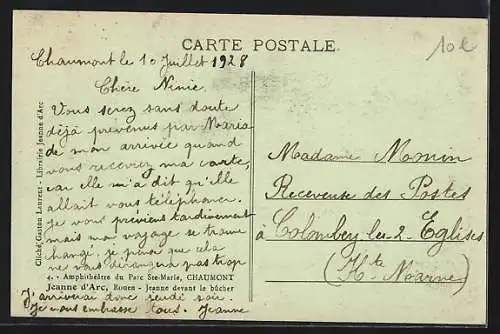 CARTE POSTALE
10€
Chaumont le 10 Juillet 1928
Chère Ninie
Vous serez sans doute
déjà prévenus par Maria
de mon arrivée quand
vous recevrez ma carte,
car elle m'a dit qu'elle
allait vous téléphoner.
je vous préviens tardivement
mais mon voyage se trouve
changé. je pense que cela
ne vous dérangera pas trop
4. - Amphithéâtre du Parc Ste-Marie, CHAUMONT
Jeanne d'Arc, Rouen - Jeanne devant le bûcher
J'arriverai donc lundi soir.
Je vous embrasse tous. Jeanne
Cliché Gaston Laurent - Librairie Jeanne d'Arc
Madame Monin
Receveuse des Postes
à Colombey les-2-Eglises
(Hte Marne)